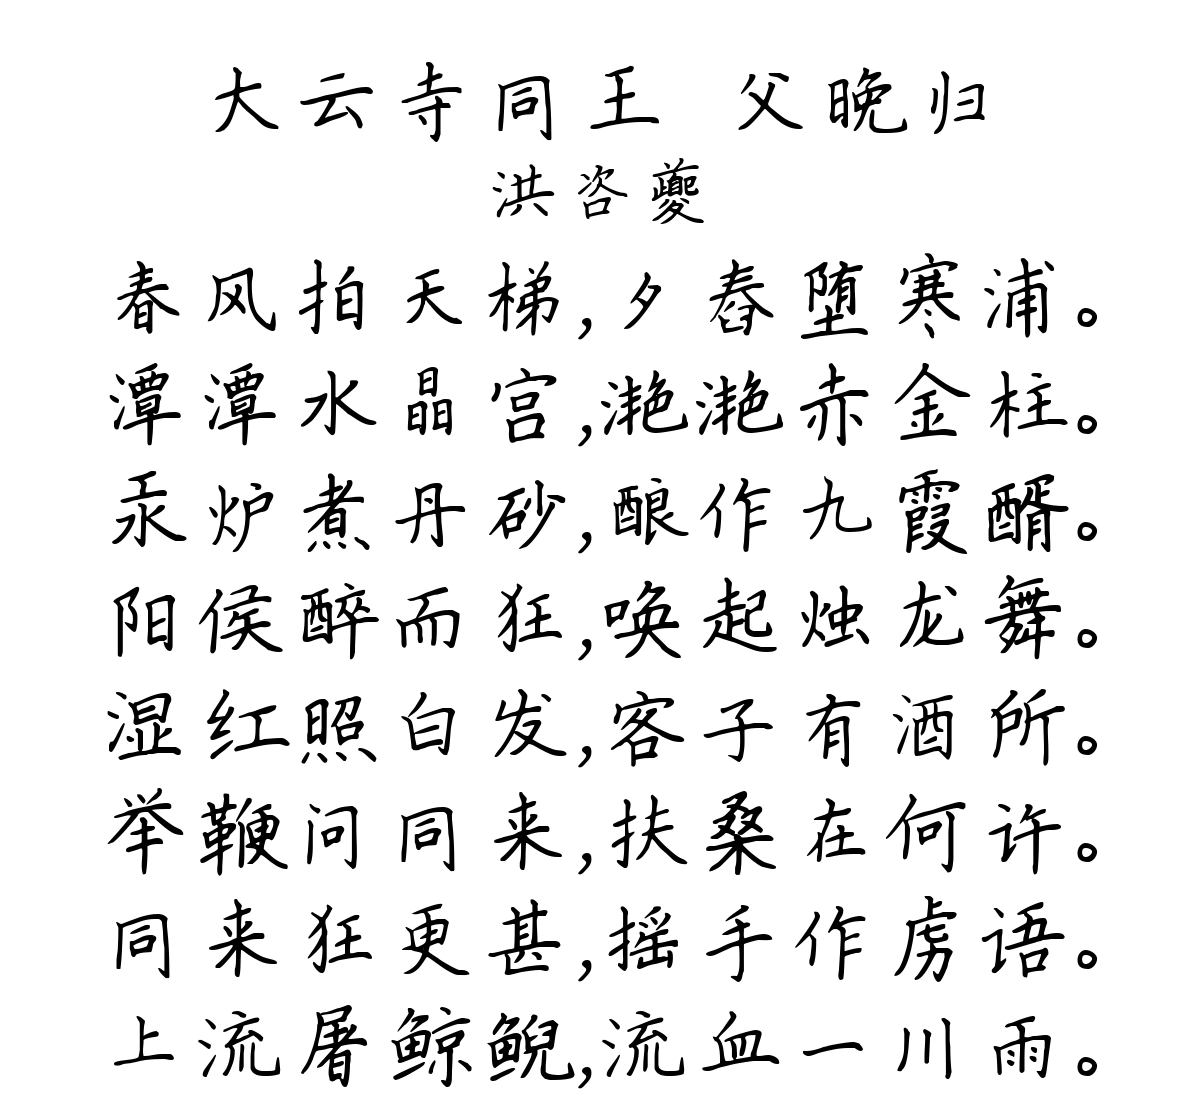 大云寺同王 父晚归
洪咨夔
春风拍天梯,夕舂堕寒浦。
潭潭水晶宫,滟滟赤金柱。
汞炉煮丹砂,酿作九霞醑。
阳侯醉而狂,唤起烛龙舞。
湿红照白发,客子有酒所。
举鞭问同来,扶桑在何许。
同来狂更甚,摇手作虏语。
上流屠鲸鲵,流血一川雨。